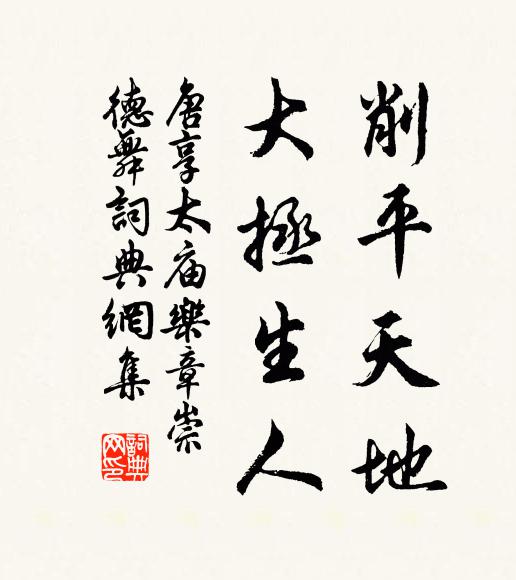 削平天地
大拯生人
唐享太庙樂章崇
德舞詞典網集
詞典
网印